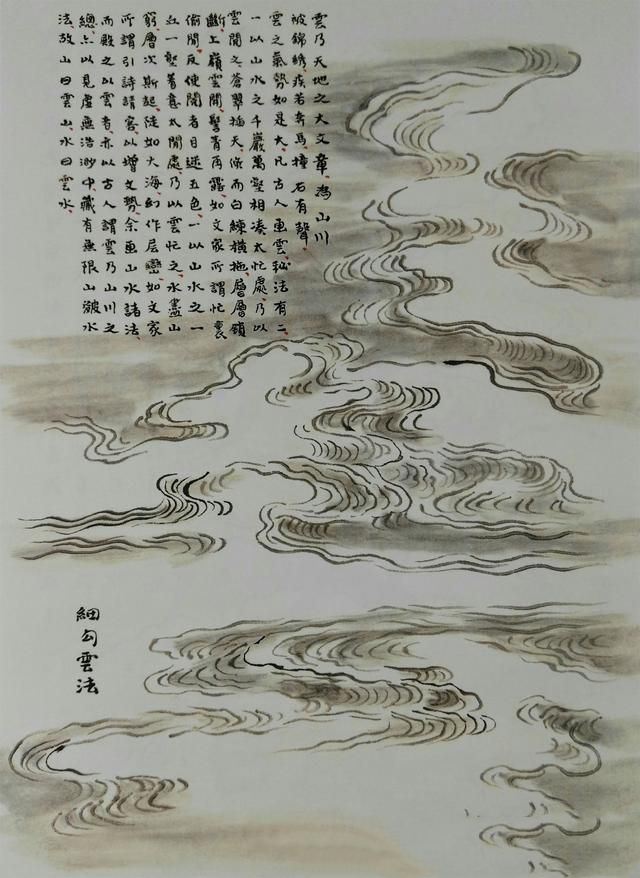 雲乃天地之大文章為山川
被錦繡疾若奔馬撞石有聲
雲之氣勢如是大凡古人畫雲秘法有二
一以山水之千巖萬壑相湊太忙處乃以
雲間之蒼翠插天倏而白練橫拖層層鎖
斷上嶺雲開髻青再露如文家所謂忙裏
偷閒反使閱者目迷五色一以山水之一
丘一壑着意太閒處乃以雲忙之水盡山
窮層次斯起陡如大海幻作層巒如文家
所謂引詩請客以增文勢余畫山水諸法
而殿之以雲者亦以古人謂雲乃山川之
總亦以見虛無浩渺中藏有無限山皴水
法故山曰雲山水曰雲水
細勾雲法